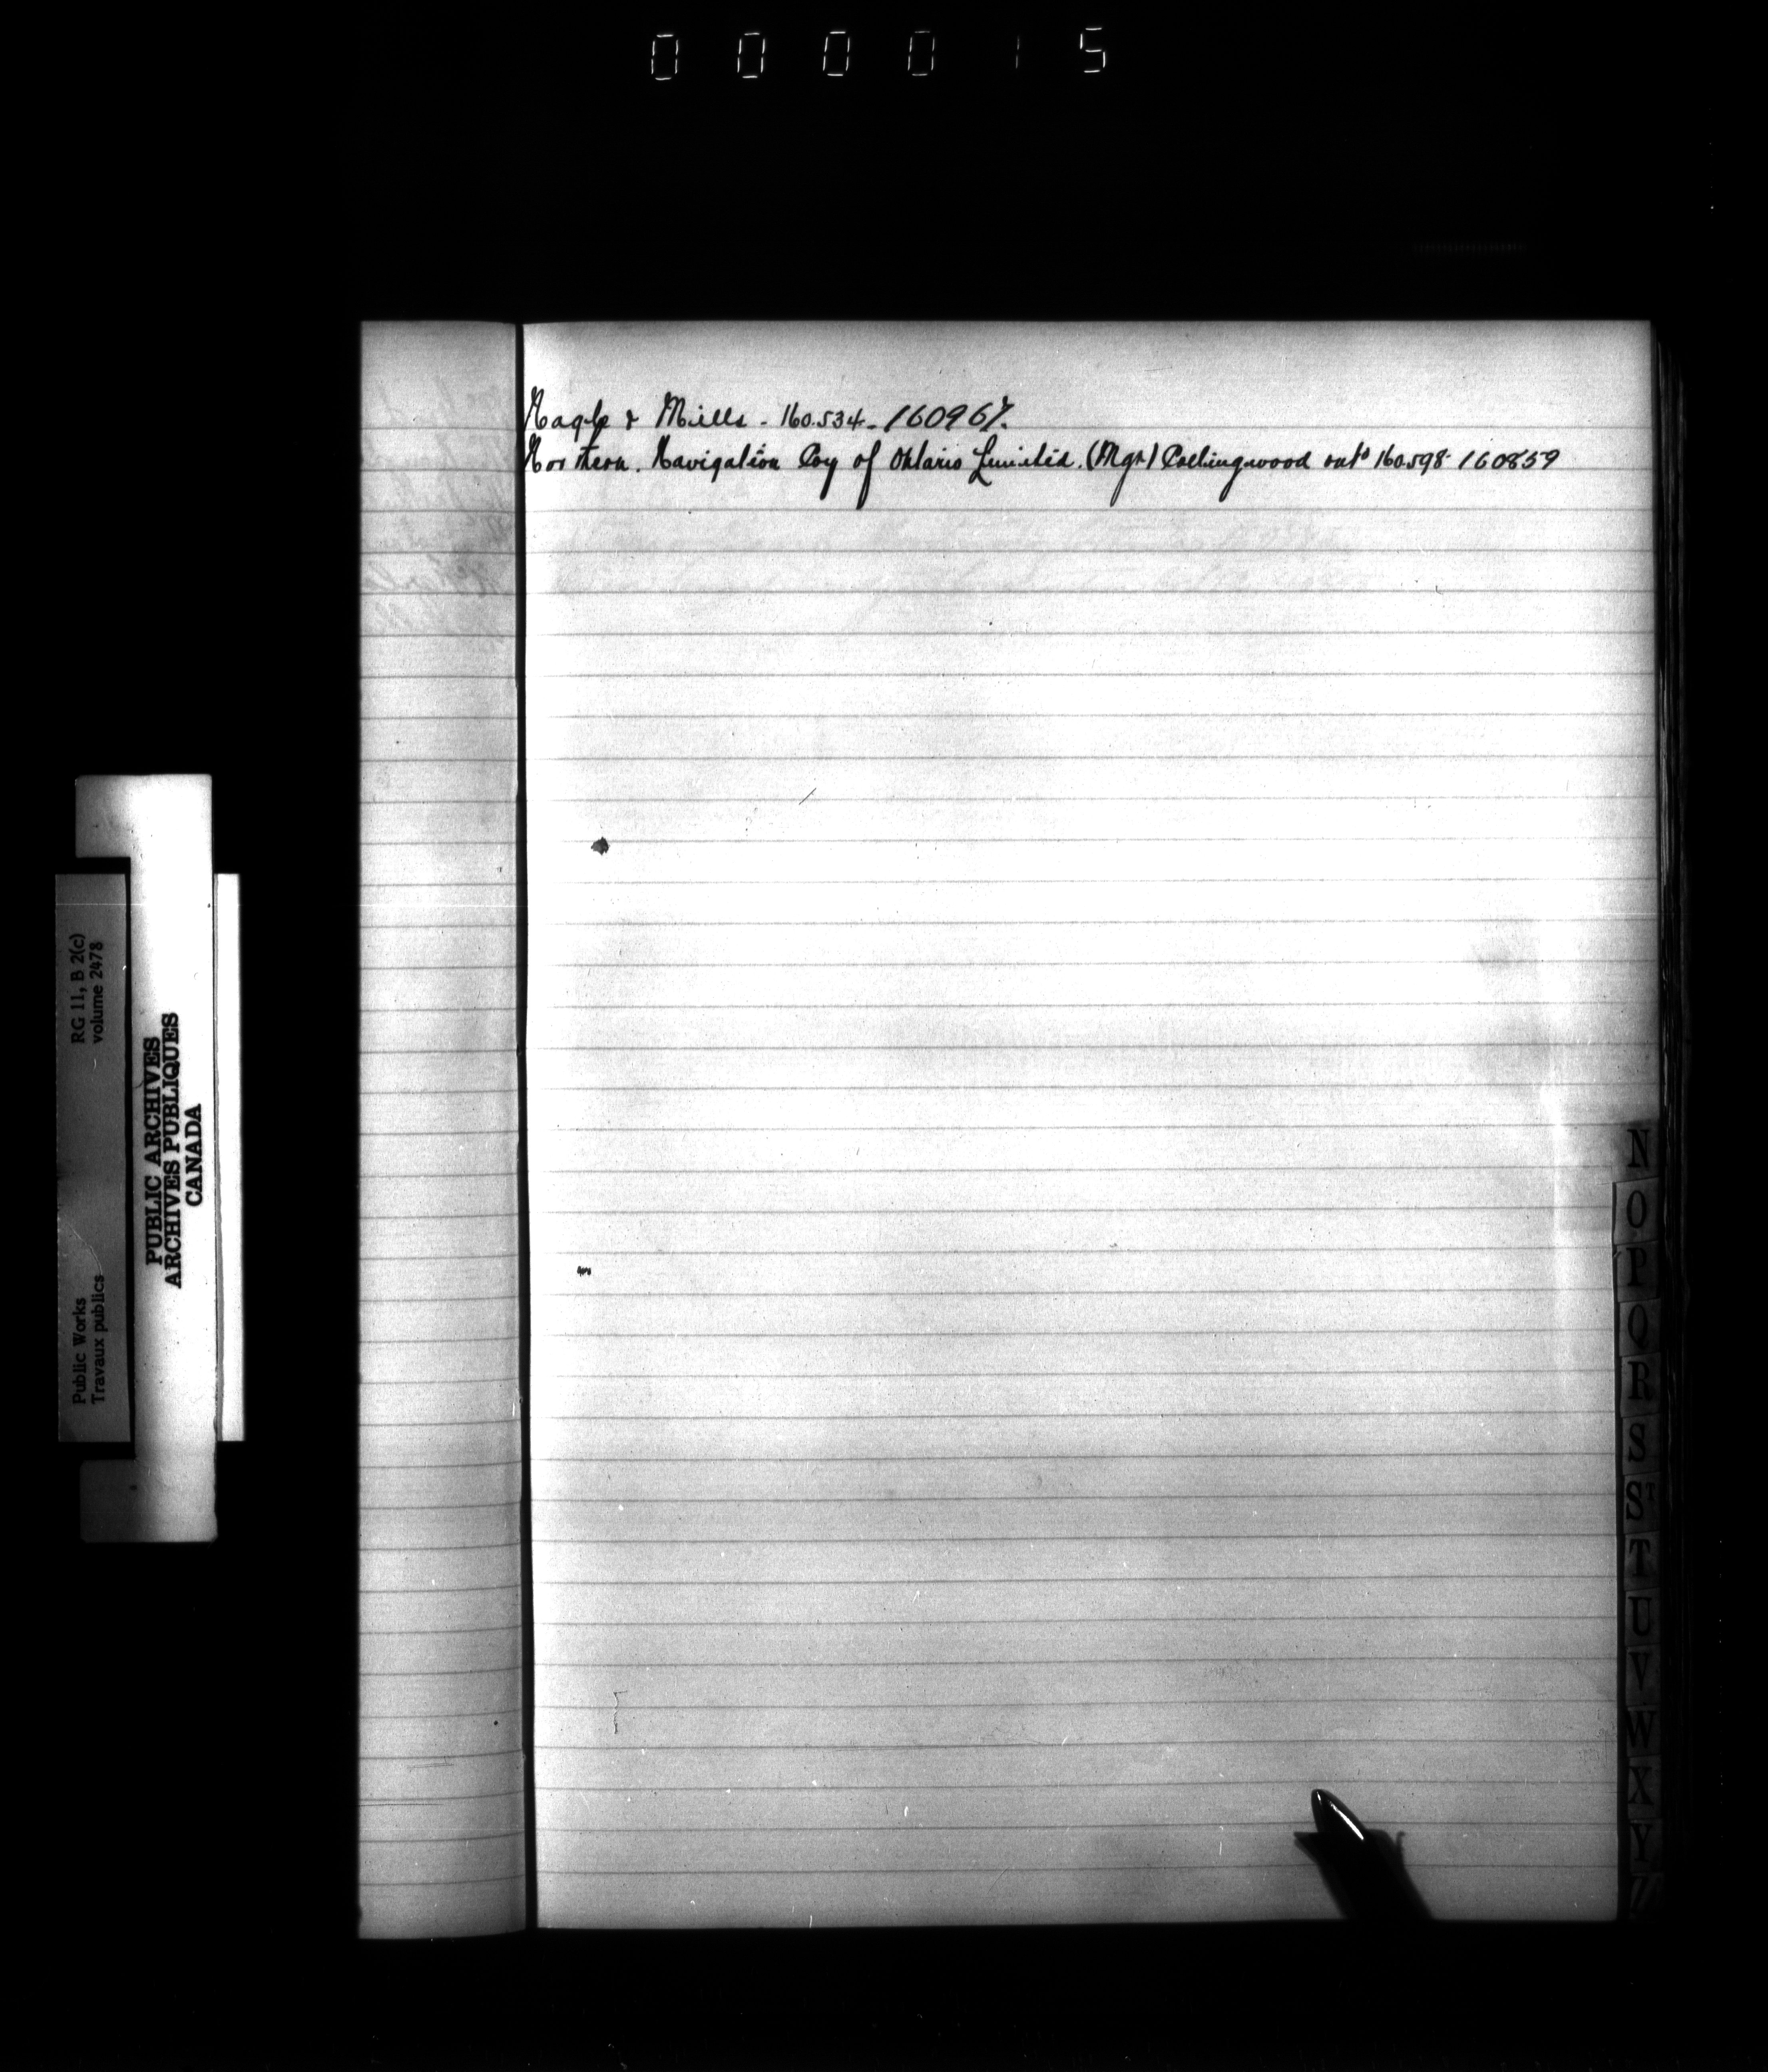 000015
Nagle & Mills - 160.534 - 160967.
Northern. Navigation Coy of Ontario Limited. (Mgr) Collingwood onto 160.598- 160859
RG 11, B 2(c)
volume 2478
Public Works
Travaux publics
PUBLIC ARCHIVES
ARCHIVES PUBLIQUES
CANADA
N
O
P
Q
R
S
ST
T
U
V
W
X
Y